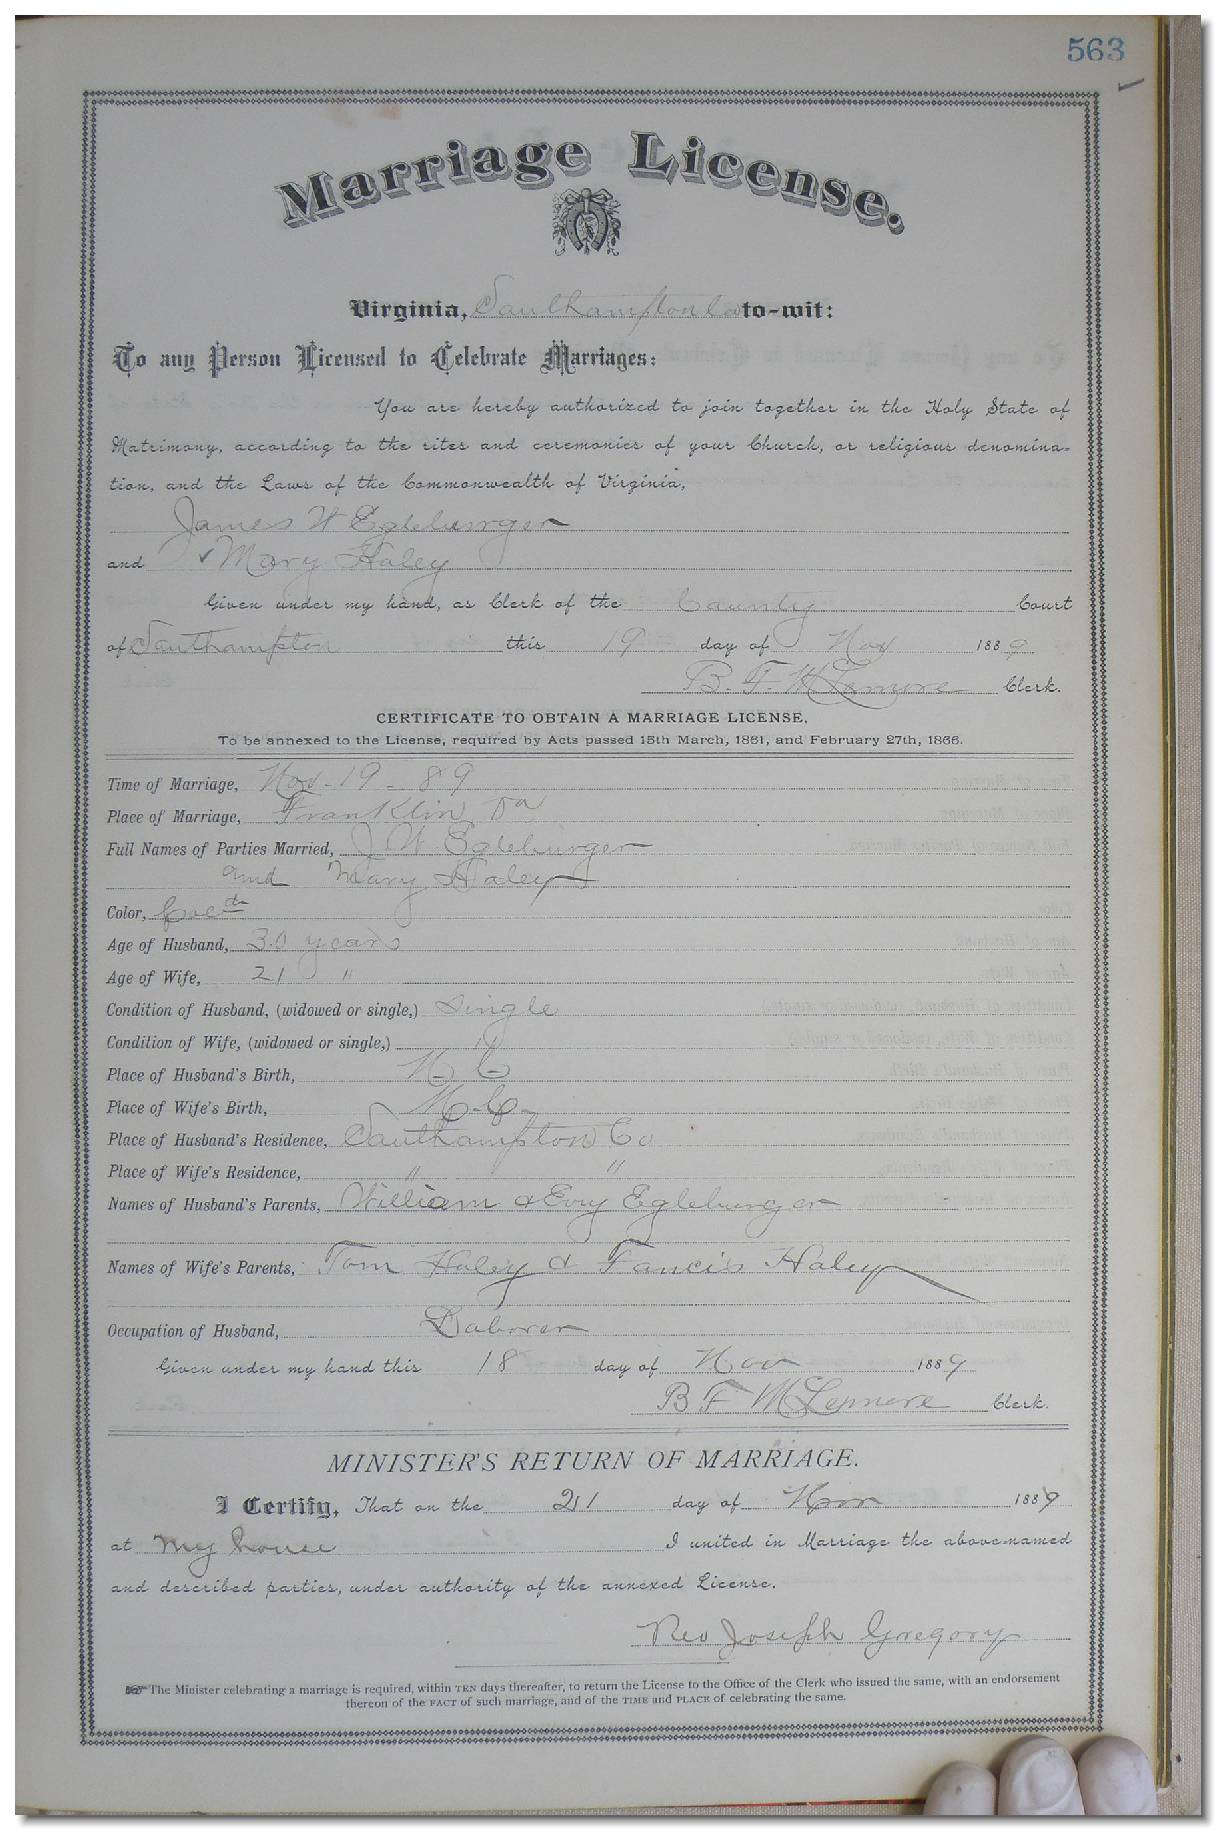 563
Marriage License.
Virginia, Southampton Co to-wit:
To any Person Licensed to Celebrate Marriages:
You are hereby authorized to join together in the Holy State of
Matrimony, according to the rites and ceremonies of your Church, or religious denomina-
tion, and the Laws of the Commonwealth of Virginia,
James W Egleburger
and Mary Haley
Given under my hand, as Clerk of the County Court
of Southampton this 19 day of Nov 1889
B. F. McLemore Clerk.
CERTIFICATE TO OBTAIN A MARRIAGE LICENSE,
To be annexed to the License, required by Acts passed 15th March, 1861, and February 27th, 1866.
Time of Marriage, Nov-19-89
Place of Marriage, Franklin Va
Full Names of Parties Married, J W Egleburger
and Mary Haley
Color, Cold
Age of Husband, 30 years
Age of Wife, 21 "
Condition of Husband, (widowed or single,) Single
Condition of Wife, (widowed or single,) "
Place of Husband's Birth, N C
Place of Wife's Birth, N. C.
Place of Husband's Residence, Southampton Co
Place of Wife's Residence, " "
Names of Husband's Parents, William & Evy Egleburger
Names of Wife's Parents, Tom Haley & Fancis Haley
Occupation of Husband, Laborer
Given under my hand this 18 day of Nov 1889
B F McLemore Clerk.
MINISTER'S RETURN OF MARRIAGE.
I Certify, That on the 21 day of Nov 1889
at my house I united in Marriage the above-named
and described parties, under authority of the annexed License.
Rev Joseph Gregory
The Minister celebrating a marriage is required, within TEN days thereafter, to return the License to the Office of the Clerk who issued the same, with an endorsement
thereon of the FACT of such marriage, and of the TIME and PLACE of celebrating the same.